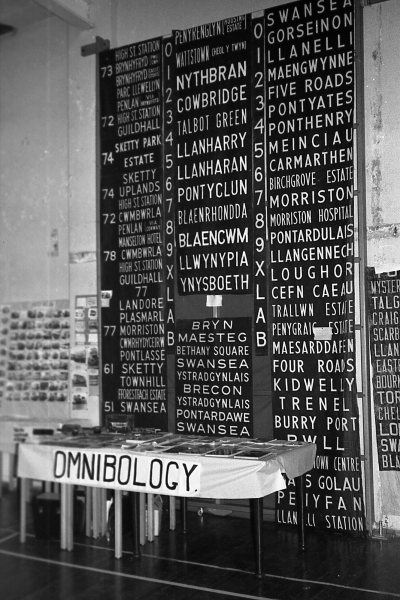 HIGH ST. STATION
73 BRYNHYFRYD
BRYNHYFRYD
PARC LLEWELYN
PENLAN
72 HIGH ST. STATION
GUILDHALL
SKETTY PARK
74 ESTATE
SKETTY
74 UPLANDS
HIGH ST. STATION
72 CWMBWRLA
PENLAN
MANSELTON HOTEL
78 CWMBWRLA
HIGH ST. STATION
GUILDHALL
77
LANDORE
PLASMARL
77 MORRISTON
CWMRHYDYCEIRW
PONTLASSE
61 SKETTY
TOWNHILL
FFORESTFACH ESTATE
51 SWANSEA
0
1
2
3
4
5
6
7
8
9
X
L
A
B
PENYRENGLYN HOUSING ESTATE
WATTSTOWN (HEOL Y TWYN)
NYTHBRAN
COWBRIDGE
TALBOT GREEN
LLANHARRY
LLANHARAN
PONTYCLUN
BLAENRHONDDA
BLAENCWM
LLWYNYPIA
YNYSBOETH
BRYN
MAESTEG
BETHANY SQUARE
SWANSEA
YSTRADGYNLAIS
BRECON
YSTRADGYNLAIS
PONTARDAWE
SWANSEA
0
1
2
3
4
5
6
7
8
9
X
L
A
B
SWANSEA
GORSEINON
LLANELLI
MAENGWYNNE
FIVE ROADS
PONTYATES
PONTHENRY
MEINCIAU
CARMARTHEN
BIRCHGROVE ESTATE
MORRISTON
MORRISTON HOSPITAL
PONTARDULAIS
LLANGENNECH
LOUGHOR
CEFN CAEAU
TRALLWN ESTATE
PENYGRAIG ESTATE
MAESARDDAFEN
FOUR ROADS
KIDWELLY
TRENEL
BURRY PORT
PWLL
TOWN CENTRE
LLAN STATION
OMNIBOLOGY.